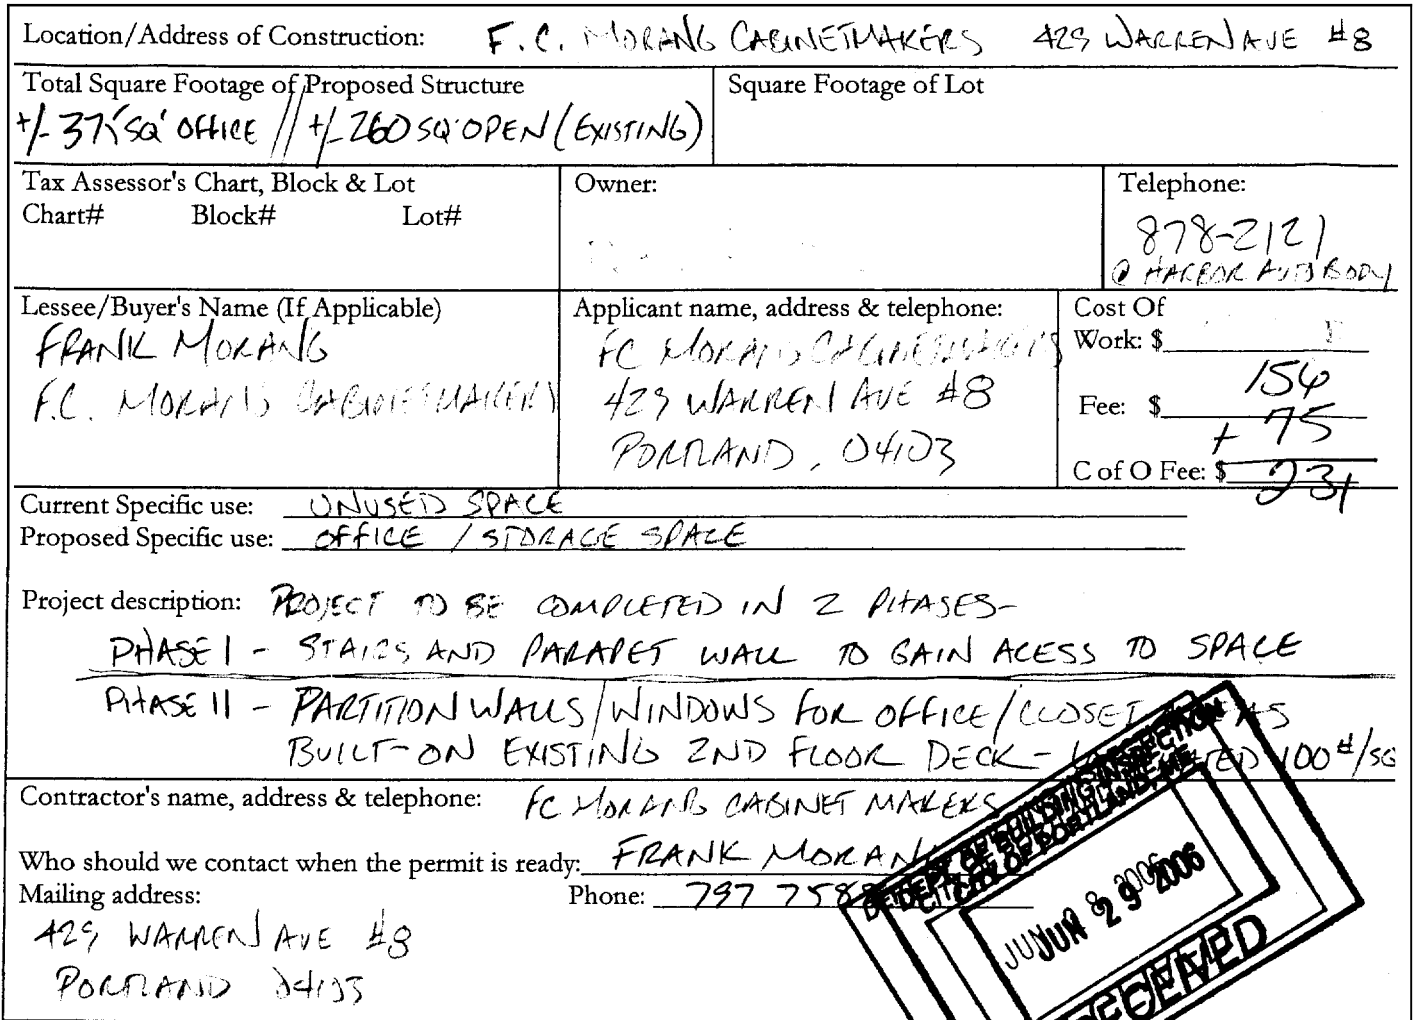 Location/Address of Construction: F.C. MORANG CABINETMAKERS 429 WARREN AVE #8
Total Square Footage of Proposed Structure
+/- 375 SQ' OFFICE // +/- 260 SQ' OPEN (EXISTING)
Square Footage of Lot
Tax Assessor's Chart, Block & Lot
Chart# Block# Lot#
Owner:
Telephone:
878-2121
@ HARBOR AUTOBODY
Lessee/Buyer's Name (If Applicable)
FRANK MORANG
F.C. MORANG CABINETMAKERS
Applicant name, address & telephone:
FC MORANG CABINETMAKERS
429 WARREN AVE #8
PORTLAND, 04103
Cost Of
Work: $
156
Fee: $
+ 75
C of O Fee: $ 231
Current Specific use: UNUSED SPACE
Proposed Specific use: OFFICE / STORAGE SPACE
Project description: PROJECT TO BE COMPLETED IN 2 PHASES-
PHASE I - STAIRS AND PARAPET WALL TO GAIN ACESS TO SPACE
PHASE II - PARTITION WALLS/WINDOWS FOR OFFICE/CLOSET
BUILT-ON EXISTING 2ND FLOOR DECK - 100#/SQ
Contractor's name, address & telephone: FC MORANG CABINET MAKERS
Who should we contact when the permit is ready: FRANK MORANG
Mailing address: Phone: 797 758
429 WARREN AVE #8
PORTLAND 04103
DEPT. OF BUILDING INSPECTION
CITY OF PORTLAND, ME
JUN 29 2006
RECEIVED